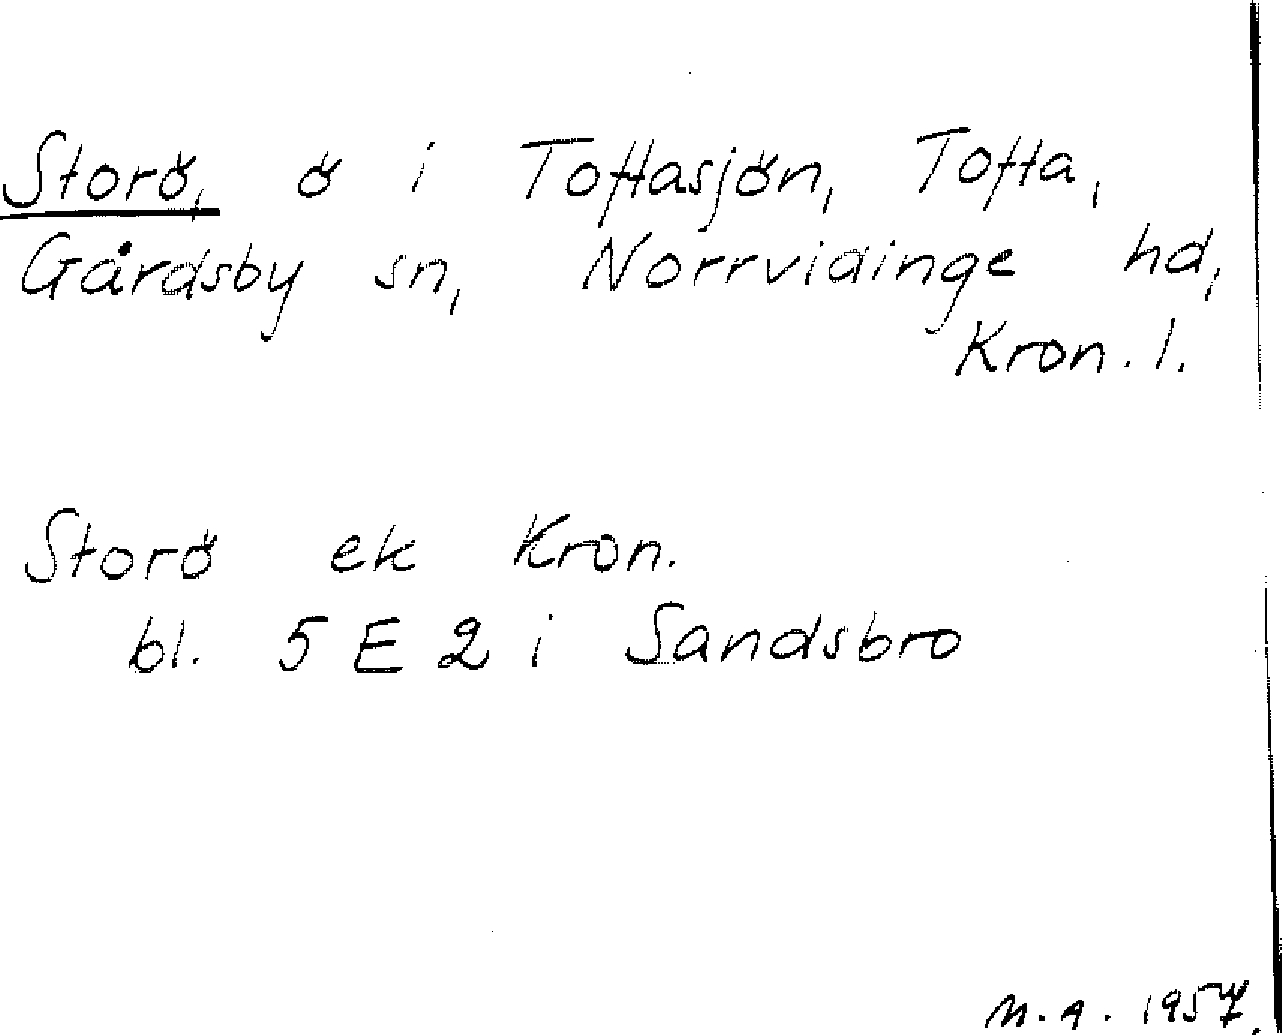 Storö, ö i Toftasjön, Tofta,
Gårdsby sn, Norrvidinge hd,
Kron. l.
Storö ek Kron.
bl. 5 E 2 i Sandsbro
M.A. 1957.